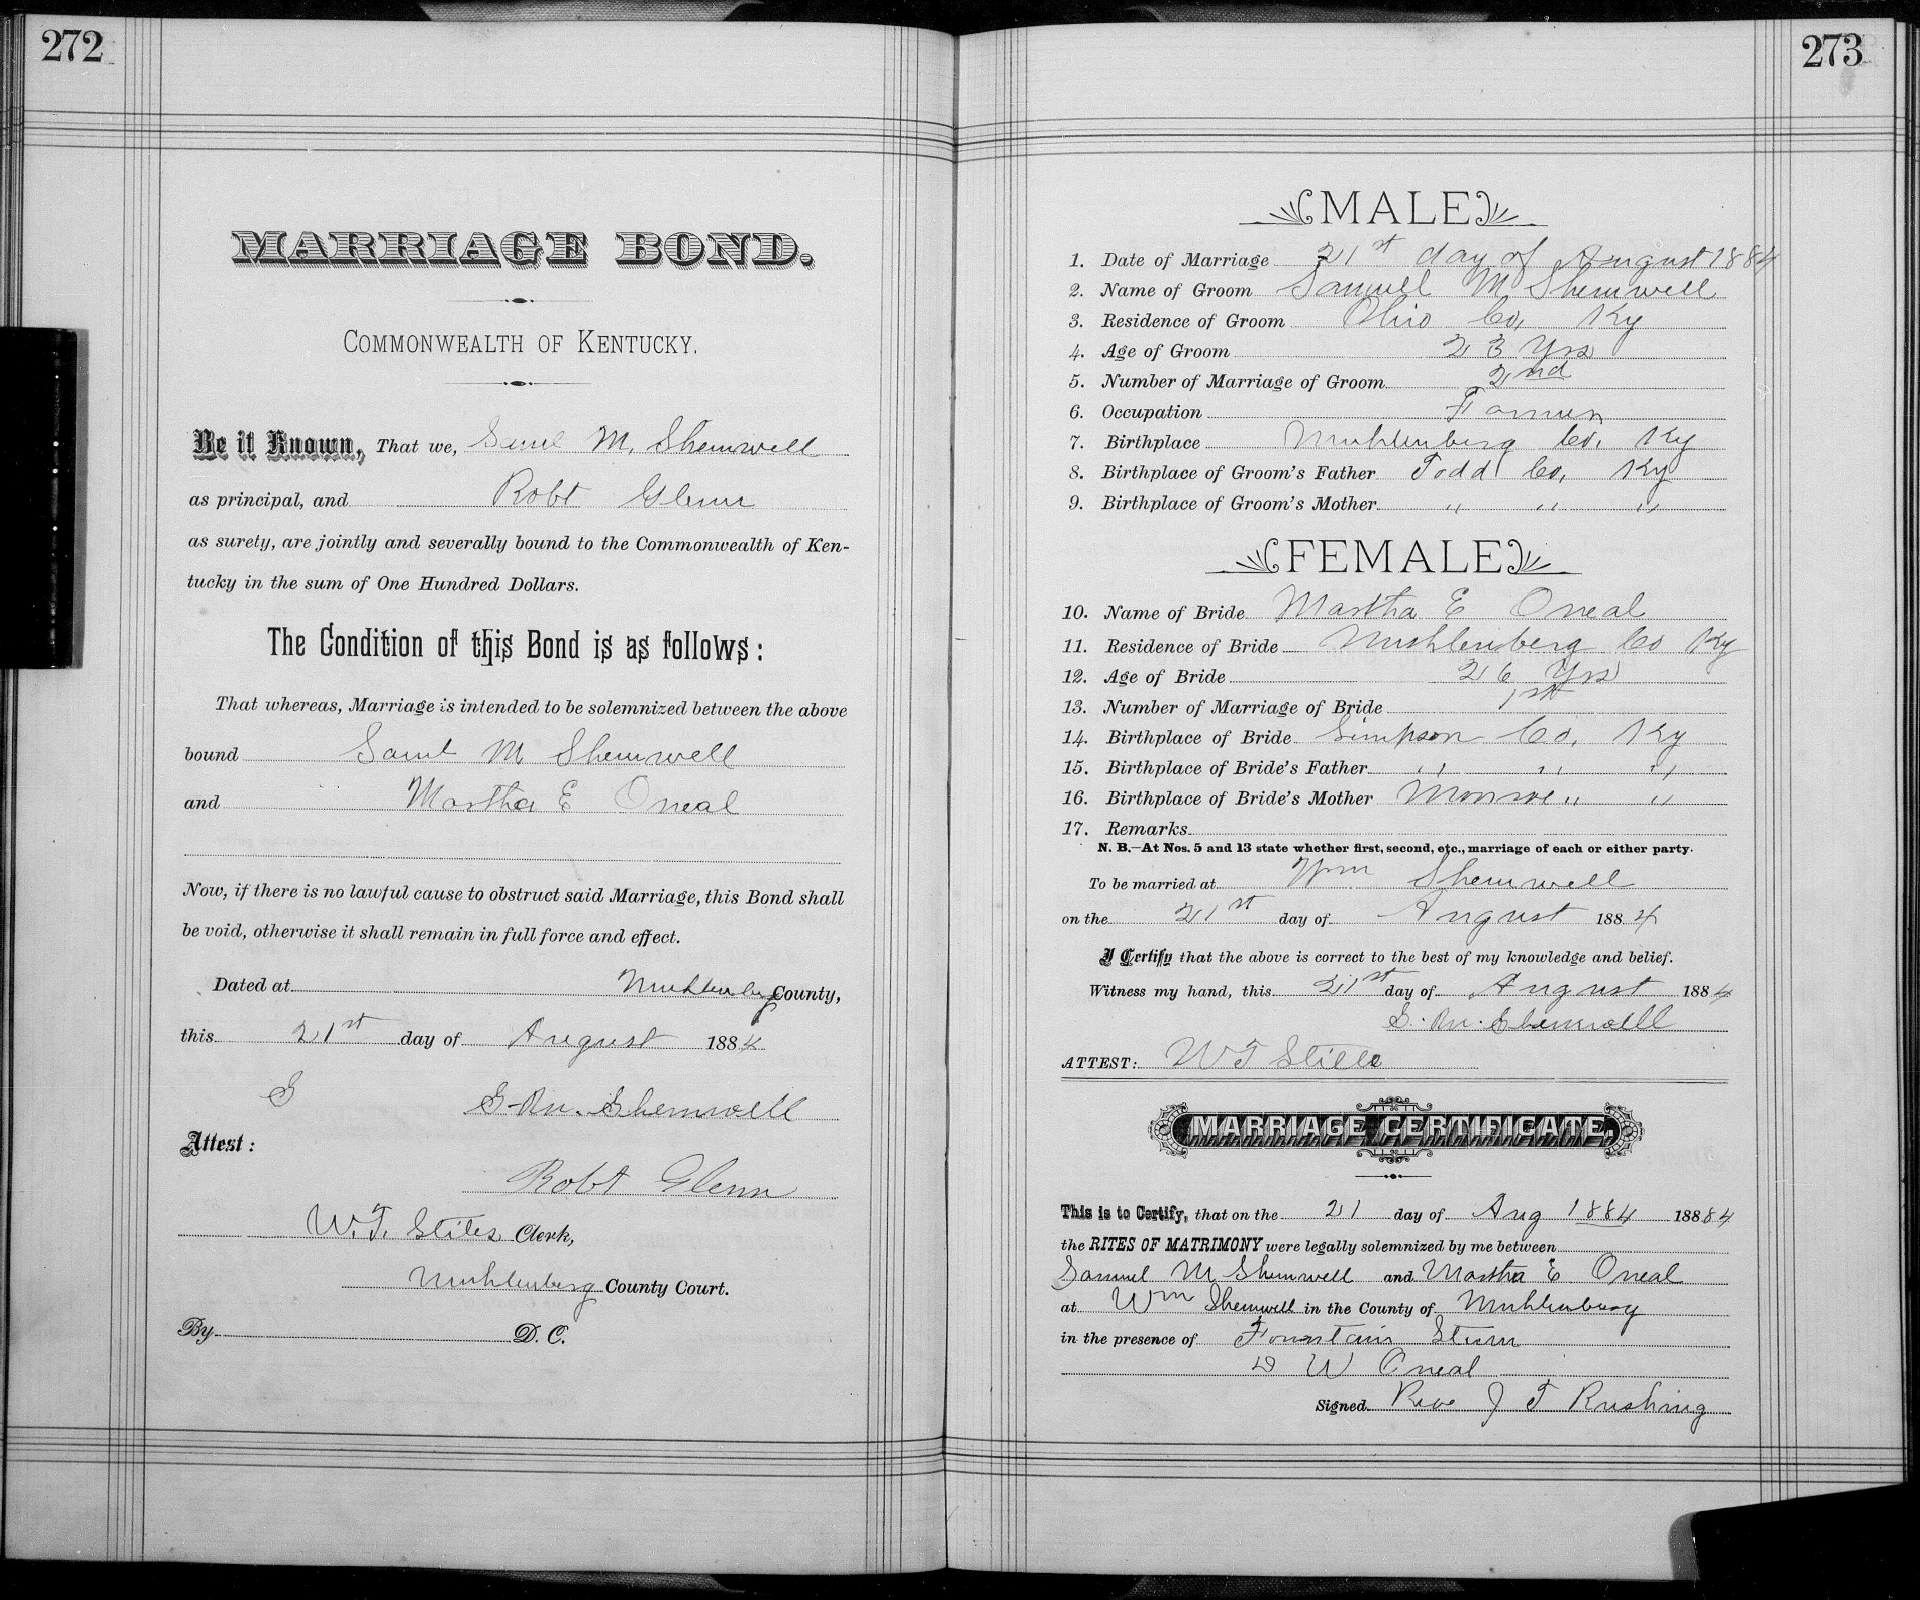 272
MARRIAGE BOND.
COMMONWEALTH OF KENTUCKY.
Be it Known, That we, Saml M. Shemwell
as principal, and Robt Glenn
as surety, are jointly and severally bound to the Commonwealth of Ken-
tucky in the sum of One Hundred Dollars.
The Condition of this Bond is as follows:
That whereas, Marriage is intended to be solemnized between the above
bound Saml M Shemwell
and Martha E Oneal
Now, if there is no lawful cause to obstruct said Marriage, this Bond shall
be void, otherwise it shall remain in full force and effect.
Dated at Muhlenberg County,
this 21st day of August 1884
S S. M. Shemwell
Attest:
Robt Glenn
W. T. Stiles Clerk,
Muhlenberg County Court.
By D. C.
273
MALE
1. Date of Marriage 21st day of August 1884
2. Name of Groom Samuel M Shemwell
3. Residence of Groom Ohio Co, Ky
4. Age of Groom 23 Yrs
5. Number of Marriage of Groom 2nd
6. Occupation Farmer
7. Birthplace Muhlenberg Co, Ky
8. Birthplace of Groom's Father Todd Co, Ky
9. Birthplace of Groom's Mother " " "
FEMALE
10. Name of Bride Martha E Oneal
11. Residence of Bride Muhlenberg Co Ky
12. Age of Bride 26 Yrs
13. Number of Marriage of Bride 1st
14. Birthplace of Bride Simpson Co, Ky
15. Birthplace of Bride's Father " " "
16. Birthplace of Bride's Mother Monroe " "
17. Remarks
N. B.—At Nos. 5 and 13 state whether first, second, etc., marriage of each or either party.
To be married at Wm Shemwell
on the 21st day of August 1884
I Certify that the above is correct to the best of my knowledge and belief.
Witness my hand, this 21st day of August 1884
S. M. Shemwell
ATTEST: W T Stiles
MARRIAGE CERTIFICATE.
This is to Certify, that on the 21 day of Aug 1884 18884
the RITES OF MATRIMONY were legally solemnized by me between
Samuel M Shemwell and Martha E Oneal
at Wm Shemwell in the County of Muhlenburg
in the presence of Fountain Sturm
D W Oneal
Signed Rev J T Rushing